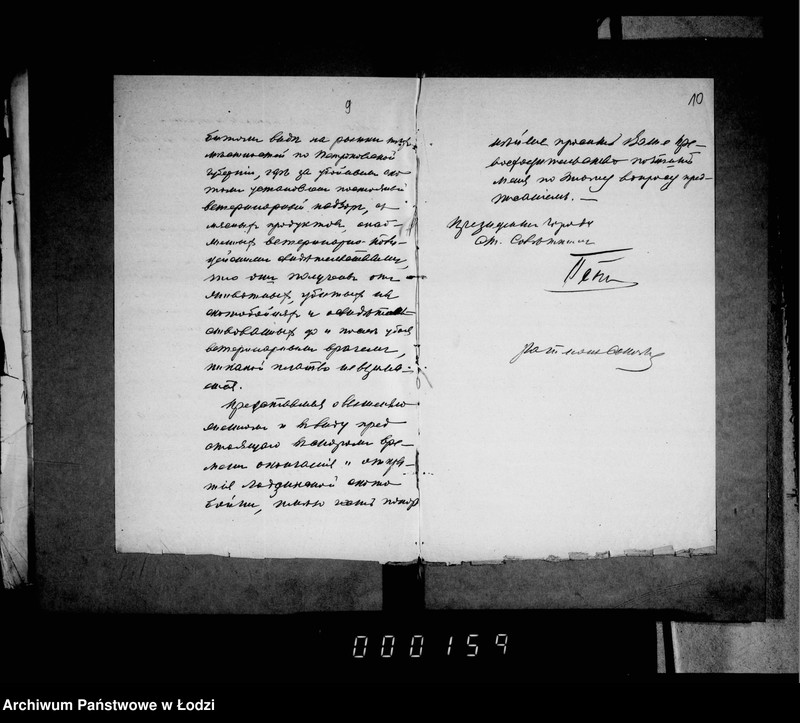 9
битомъ видѣ на рынки
по Петроковской
губерніи, гдѣ за убойнымъ ско-
томъ установленъ постоянный
ветеринарный надзоръ, съ
мясныхъ продуктовъ, снаб-
женныхъ ветеринарно-поли-
цейскими свидѣтельствами,
что они получены отъ
животныхъ, убитыхъ на
скотобойняхъ и освидѣтель-
ствованныхъ до и послѣ убоя
ветеринарнымъ врачемъ,
никакой платы не взима-
ется.
Представляя о вышеизло-
женномъ и въ виду пред-
стоящаго въ скоромъ вре-
мени окончанія и откры-
тія Лодзинской ското-
бойни, имѣю честь покор-
10
нѣйше просить Ваше Пре-
восходительство почтить
меня по этому вопросу пред-
писаніемъ. —
Президентъ города
Ст. Совѣтникъ
000159
Archiwum Państwowe w Łodzi